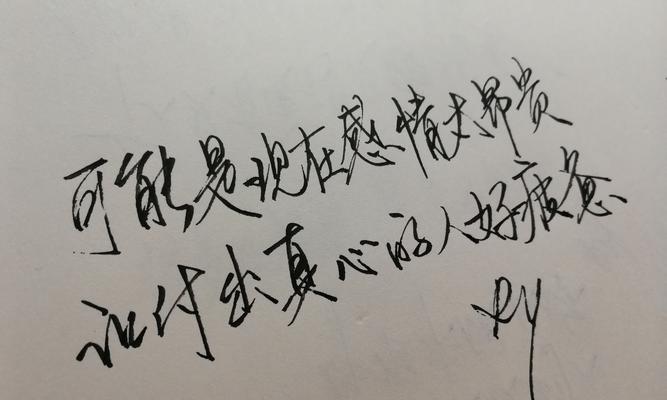 可能是现在感情太昂贵
让付出真心的人好疲惫